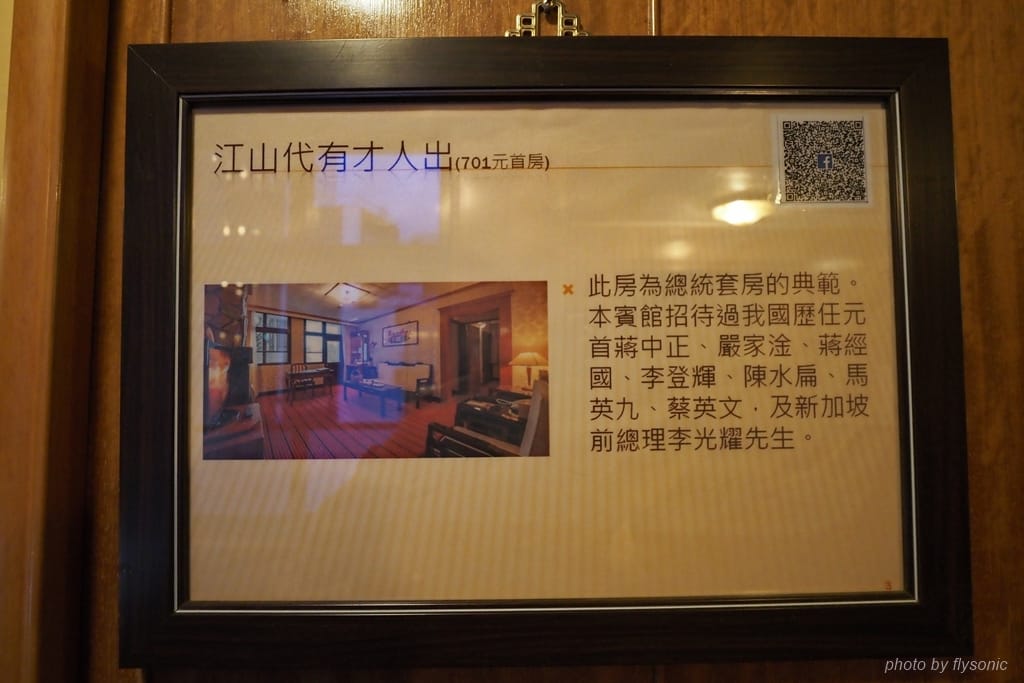 江山代有才人出(701元首房)
此房為總統套房的典範。
本賓館招待過我國歷任元
首蔣中正、嚴家淦、蔣經
國、李登輝、陳水扁、馬
英九、蔡英文，及新加坡
前總理李光耀先生。
3
photo by flysonic